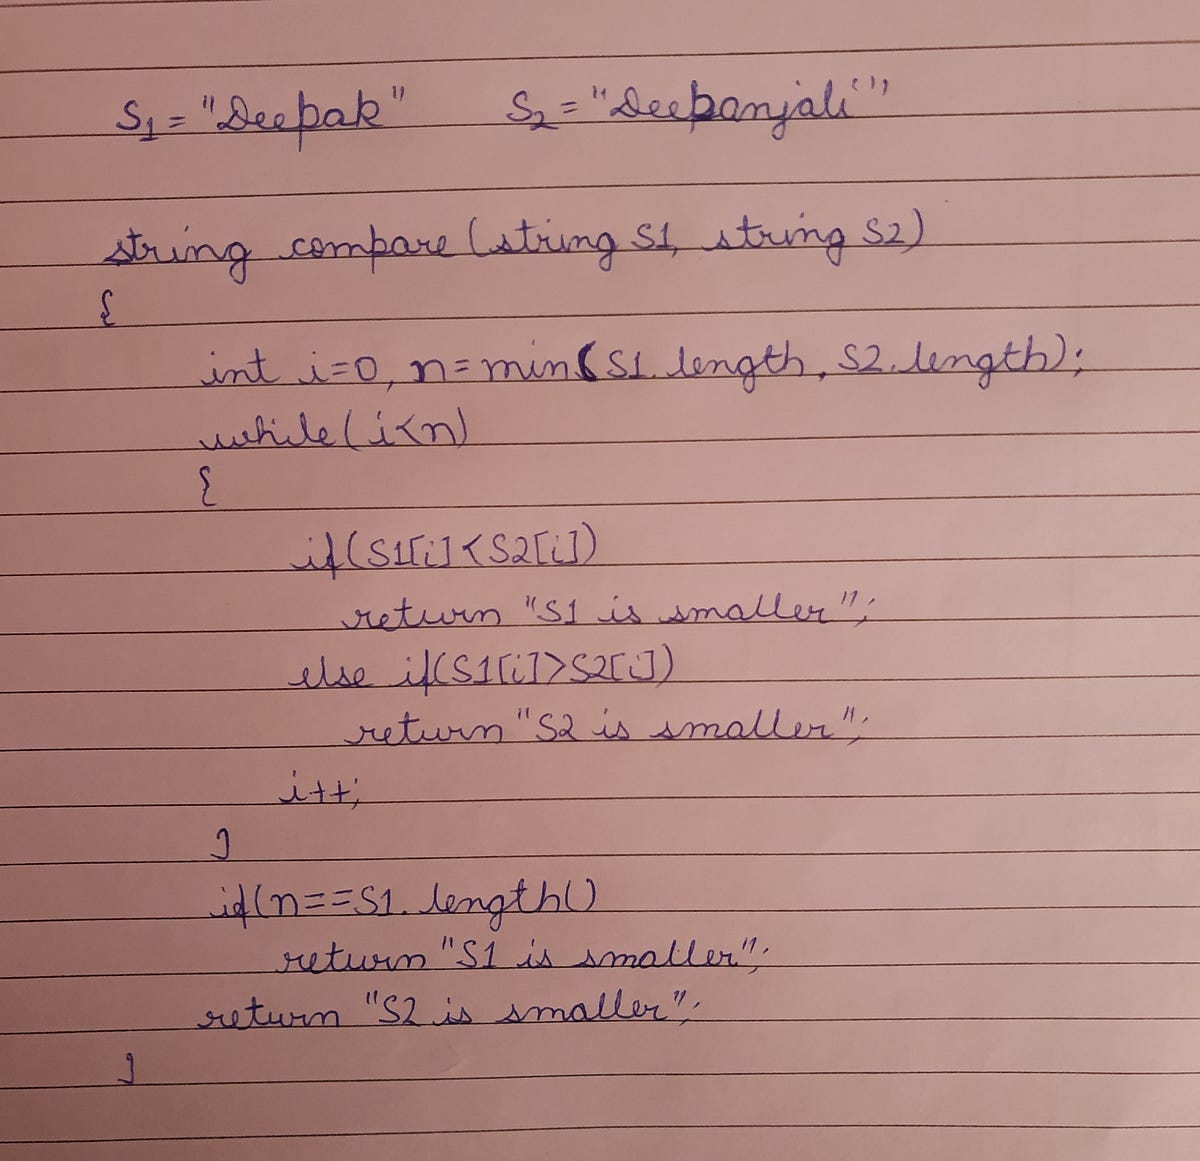 S1 = "Deepak" S2 = "Deepanjali"
string compare (string S1, string S2)
{
int i=0, n=min(S1.length, S2.length);
while(i<n)
{
if(S1[i]<S2[i])
return "S1 is smaller";
else if(S1[i]>S2[i])
return "S2 is smaller";
i++;
}
if(n==S1.length()
return "S1 is smaller";
return "S2 is smaller";
}